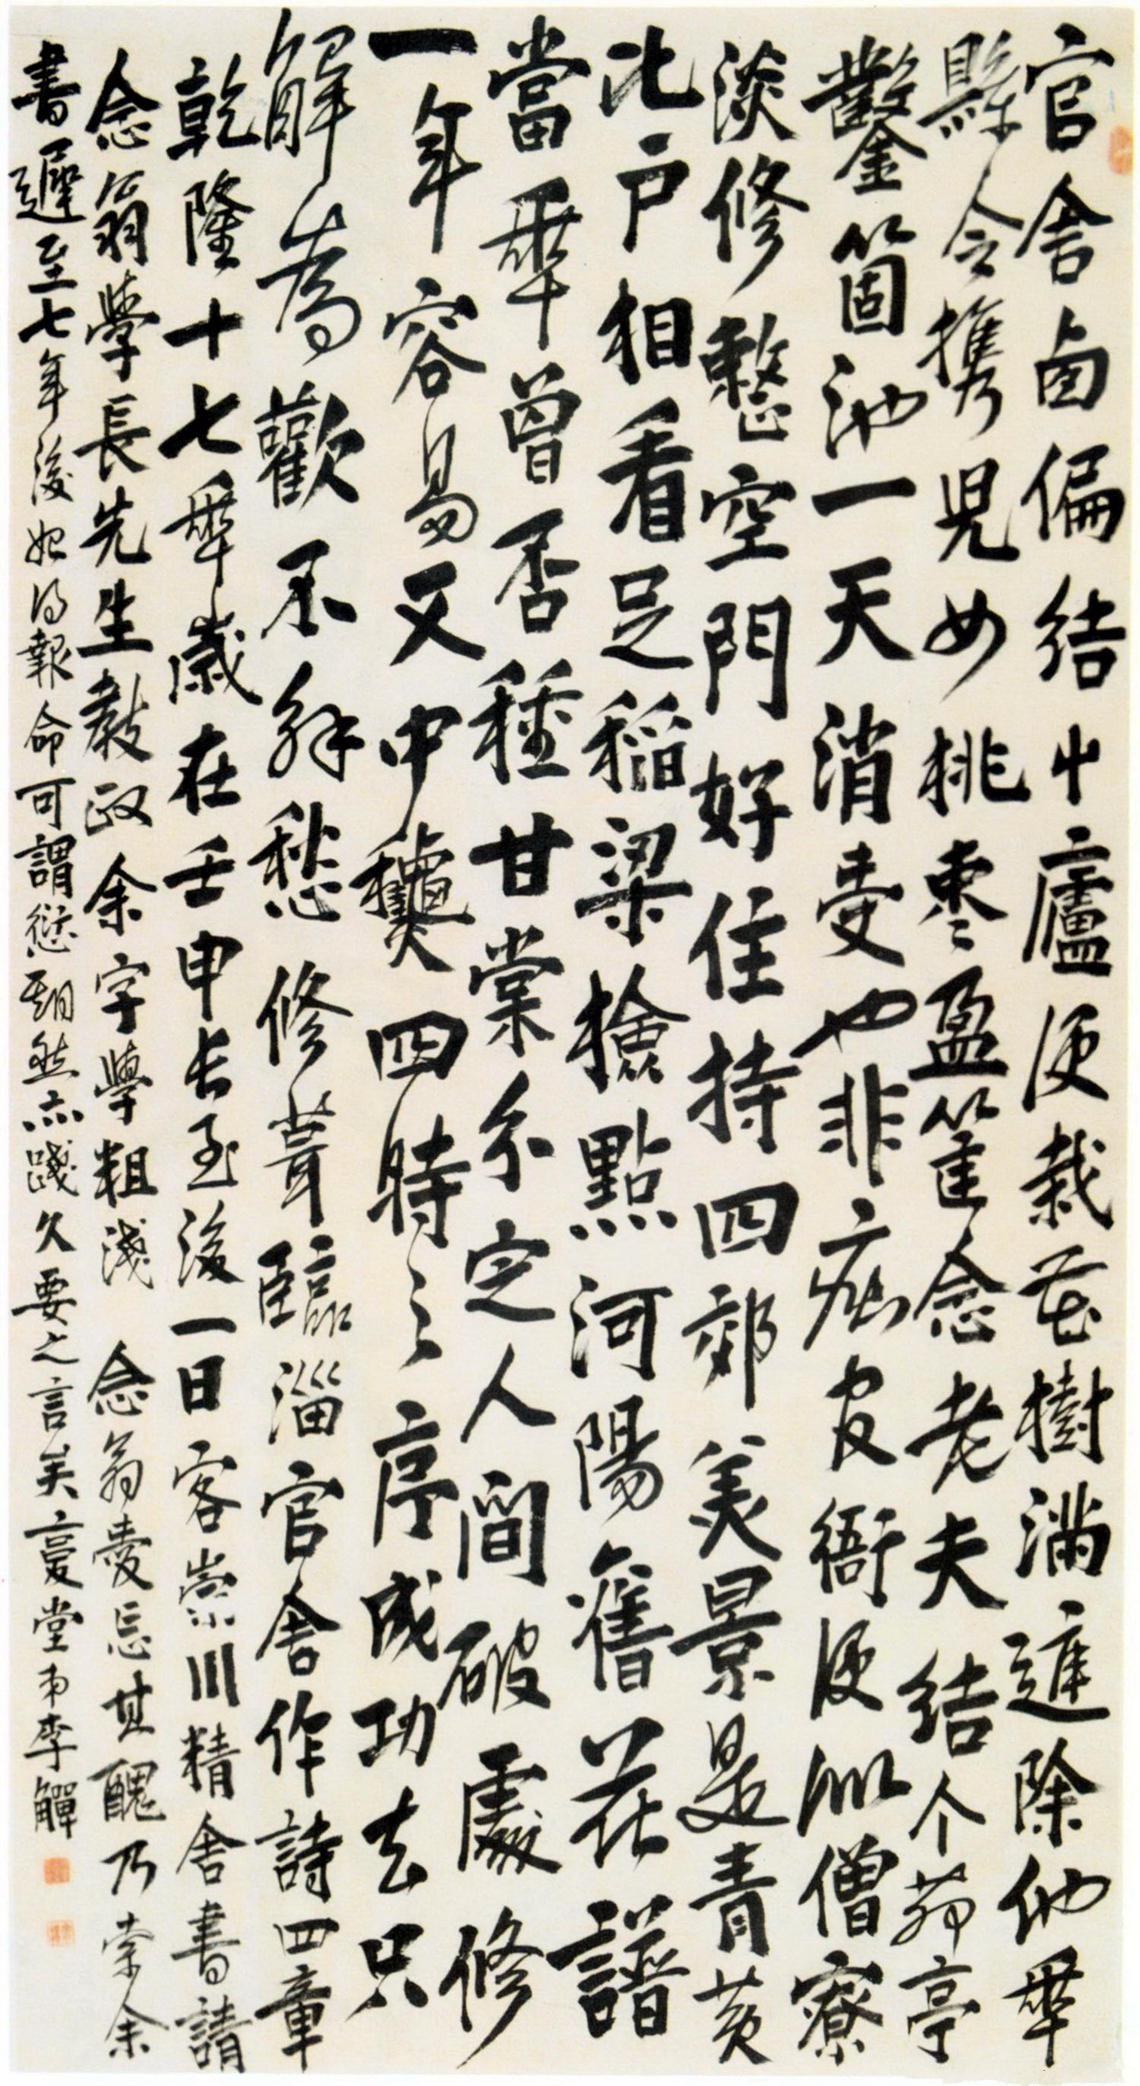 官舍鹵偏結艸廬便栽花樹滿進除他年
縣令携兒女桃棗盈筐念老夫結个茆亭
鑿箇池一天消受也非疵官衙便似僧寮
淡修整空門好住持四郊美景是青黄
比户相看足稻粱撿點河陽舊花譜
當年曾否種甘棠分定人間破處修
一年容易又中龝四時之序成功去只
解為歡不解愁修葺臨淄官舍作詩四章
乾隆十七年歲在壬申長至後一日客崇川精舍書請
念翁學長先生教政余字學粗淺念翁愛忘其醜乃索余
書遲至七年後始得報命可謂愆期然亦踐久要之言矣憂堂弟李觶